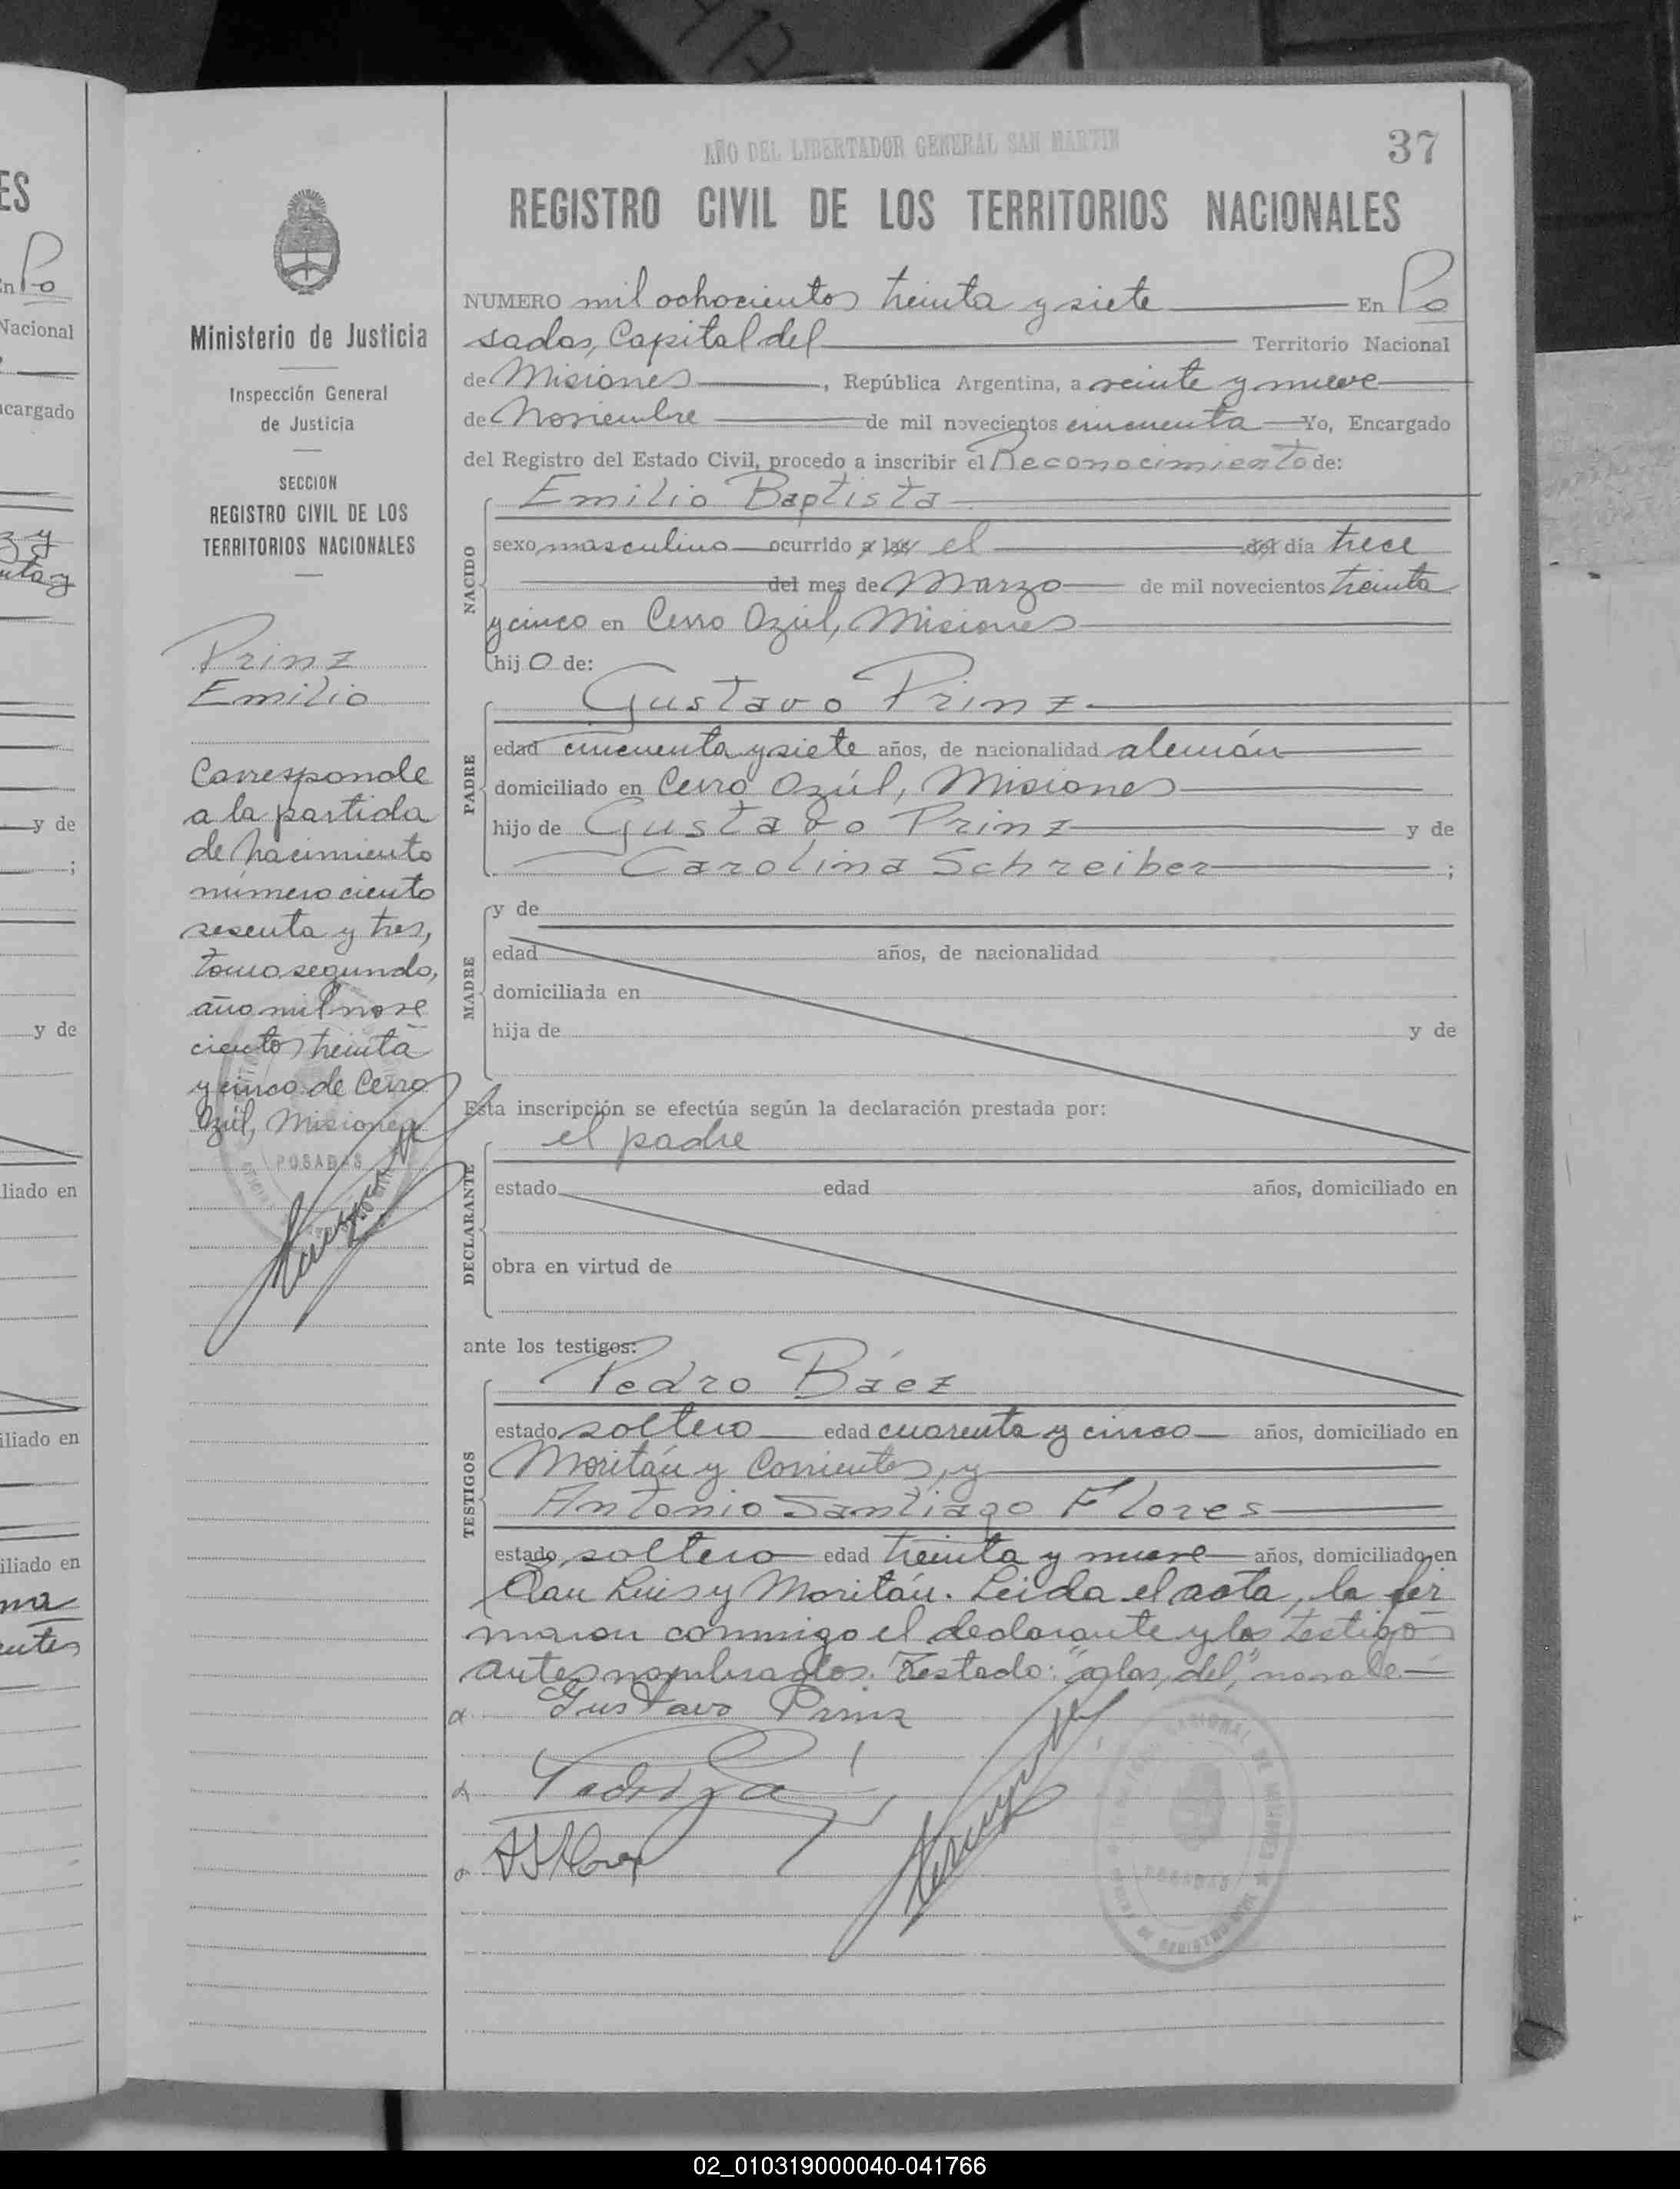 AÑO DEL LIBERTADOR GENERAL SAN MARTIN
37
REGISTRO CIVIL DE LOS TERRITORIOS NACIONALES
Ministerio de Justicia
Inspección General
de Justicia
SECCION
REGISTRO CIVIL DE LOS
TERRITORIOS NACIONALES
Prinz
Emilio
Corresponde
a la partida
de nacimiento
número ciento
sesenta y tres,
tomo segundo,
año mil nove
cientos treinta
y cinco de Cerro
Azúl, Misiones
POSADAS
NUMERO mil ochocientos treinta y siete En Po
sadas, Capital del Territorio Nacional
de Misiones, República Argentina, a veinte y nueve
de Noviembre de mil novecientos cincuenta Yo, Encargado
del Registro del Estado Civil, procedo a inscribir el Reconocimiento de:
NACIDO
Emilio Baptista
sexo masculino ocurrido a las el del día trece
del mes de Marzo de mil novecientos treinta
y cinco en Cerro Azúl, Misiones
hijo de:
PADRE
Gustavo Prinz
edad cincuenta y siete años, de nacionalidad alemán
domiciliado en Cerro Azúl, Misiones
hijo de Gustavo Prinz y de
Carolina Schreiber;
MADRE
y de
edad años, de nacionalidad
domiciliada en
hija de y de
Esta inscripción se efectúa según la declaración prestada por:
DECLARANTE
el padre
estado edad años, domiciliado en
obra en virtud de
ante los testigos:
TESTIGOS
Pedro Báez
estado soltero edad cuarenta y cinco años, domiciliado en
Moritán y Corrientes, y
Antonio Santiago Flores
estado soltero edad treinta y nueve años, domiciliado en
San Luis y Moritán. Leida el acta, la fir
maron conmigo el declarante y los testigos
antes nombrados. Testado: "a las, del," no vale.
Gustavo Prinz
POSADAS
ES
En Po
Nacional
ncargado
y de
;
y de
liado en
iliado en
iliado en
02_010319000040-041766